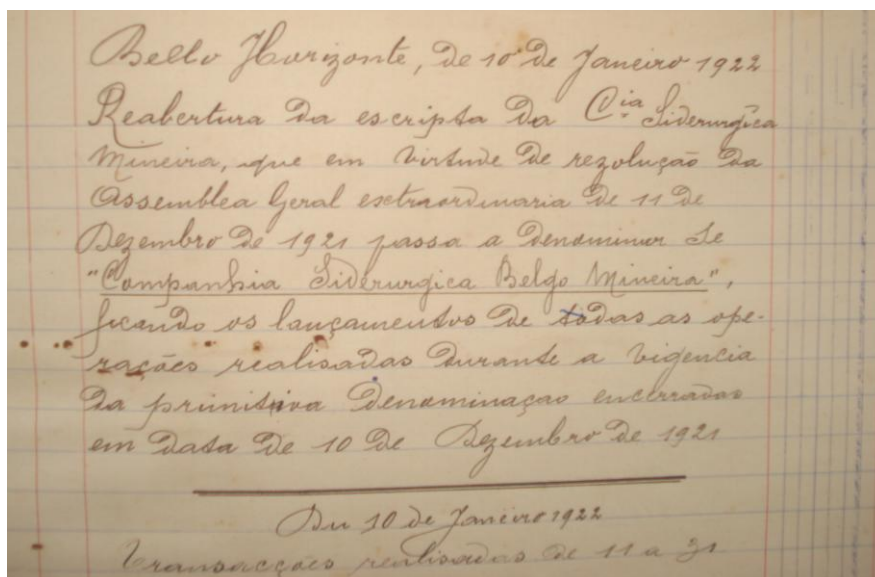 Bello Horizonte, de 10 de Janeiro 1922
Reabertura da escripta da Cia. Siderurgica
Mineira, que em virtude de rezolução da
Assemblea Geral esctraordinaria de 11 de
Dezembro de 1921 passa a denominar se
"Companhia Siderurgica Belgo Mineira",
ficando os lançamentos de todas as ope-
rações realisadas durante a vigencia
da primitiva denominaçao encerradas
em data de 10 de Dezembro de 1921
Du 10 de Janeiro 1922
Transacções realisadas de 11 a 31